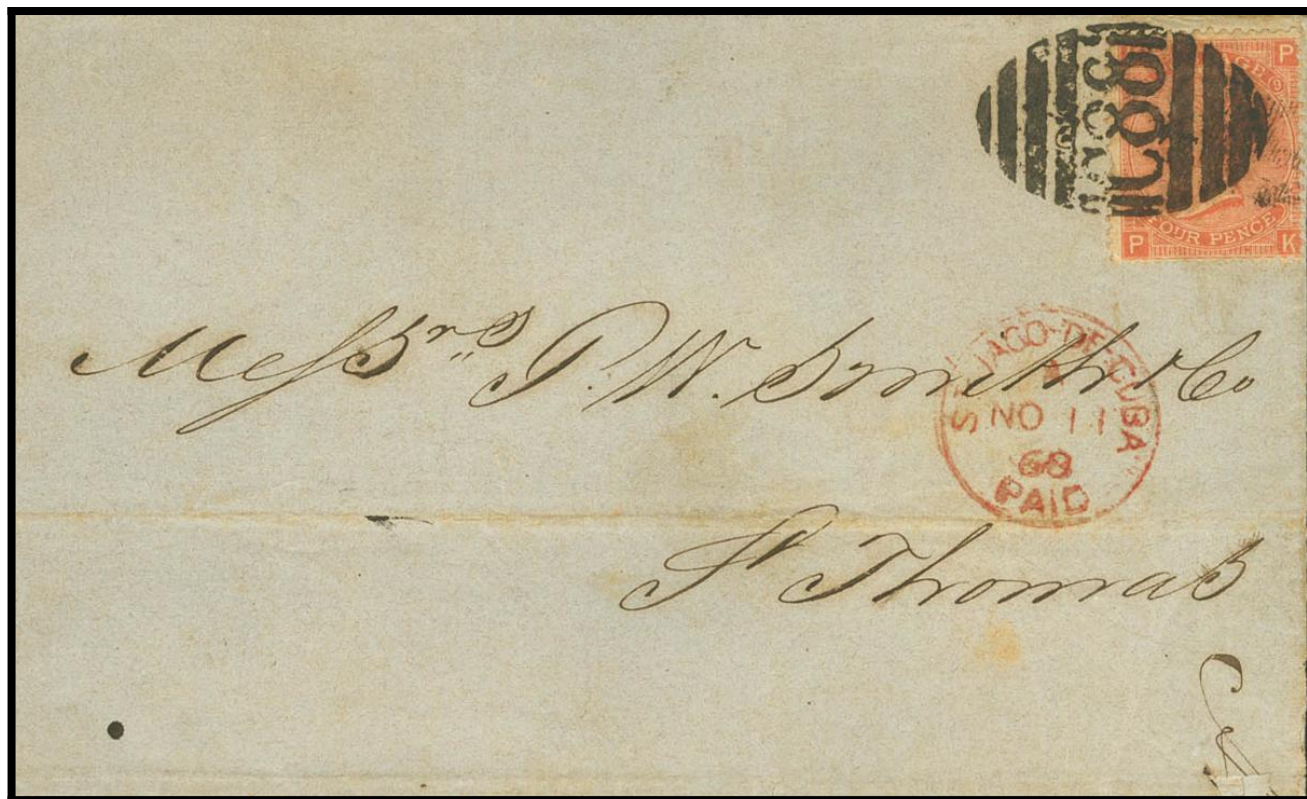 C88
POSTAGE
P
FOUR PENCE
P K
Messrs. P. W. Smith & Co
ST JAGO-DE-CUBA
A
NO 11
68
PAID
St Thomas